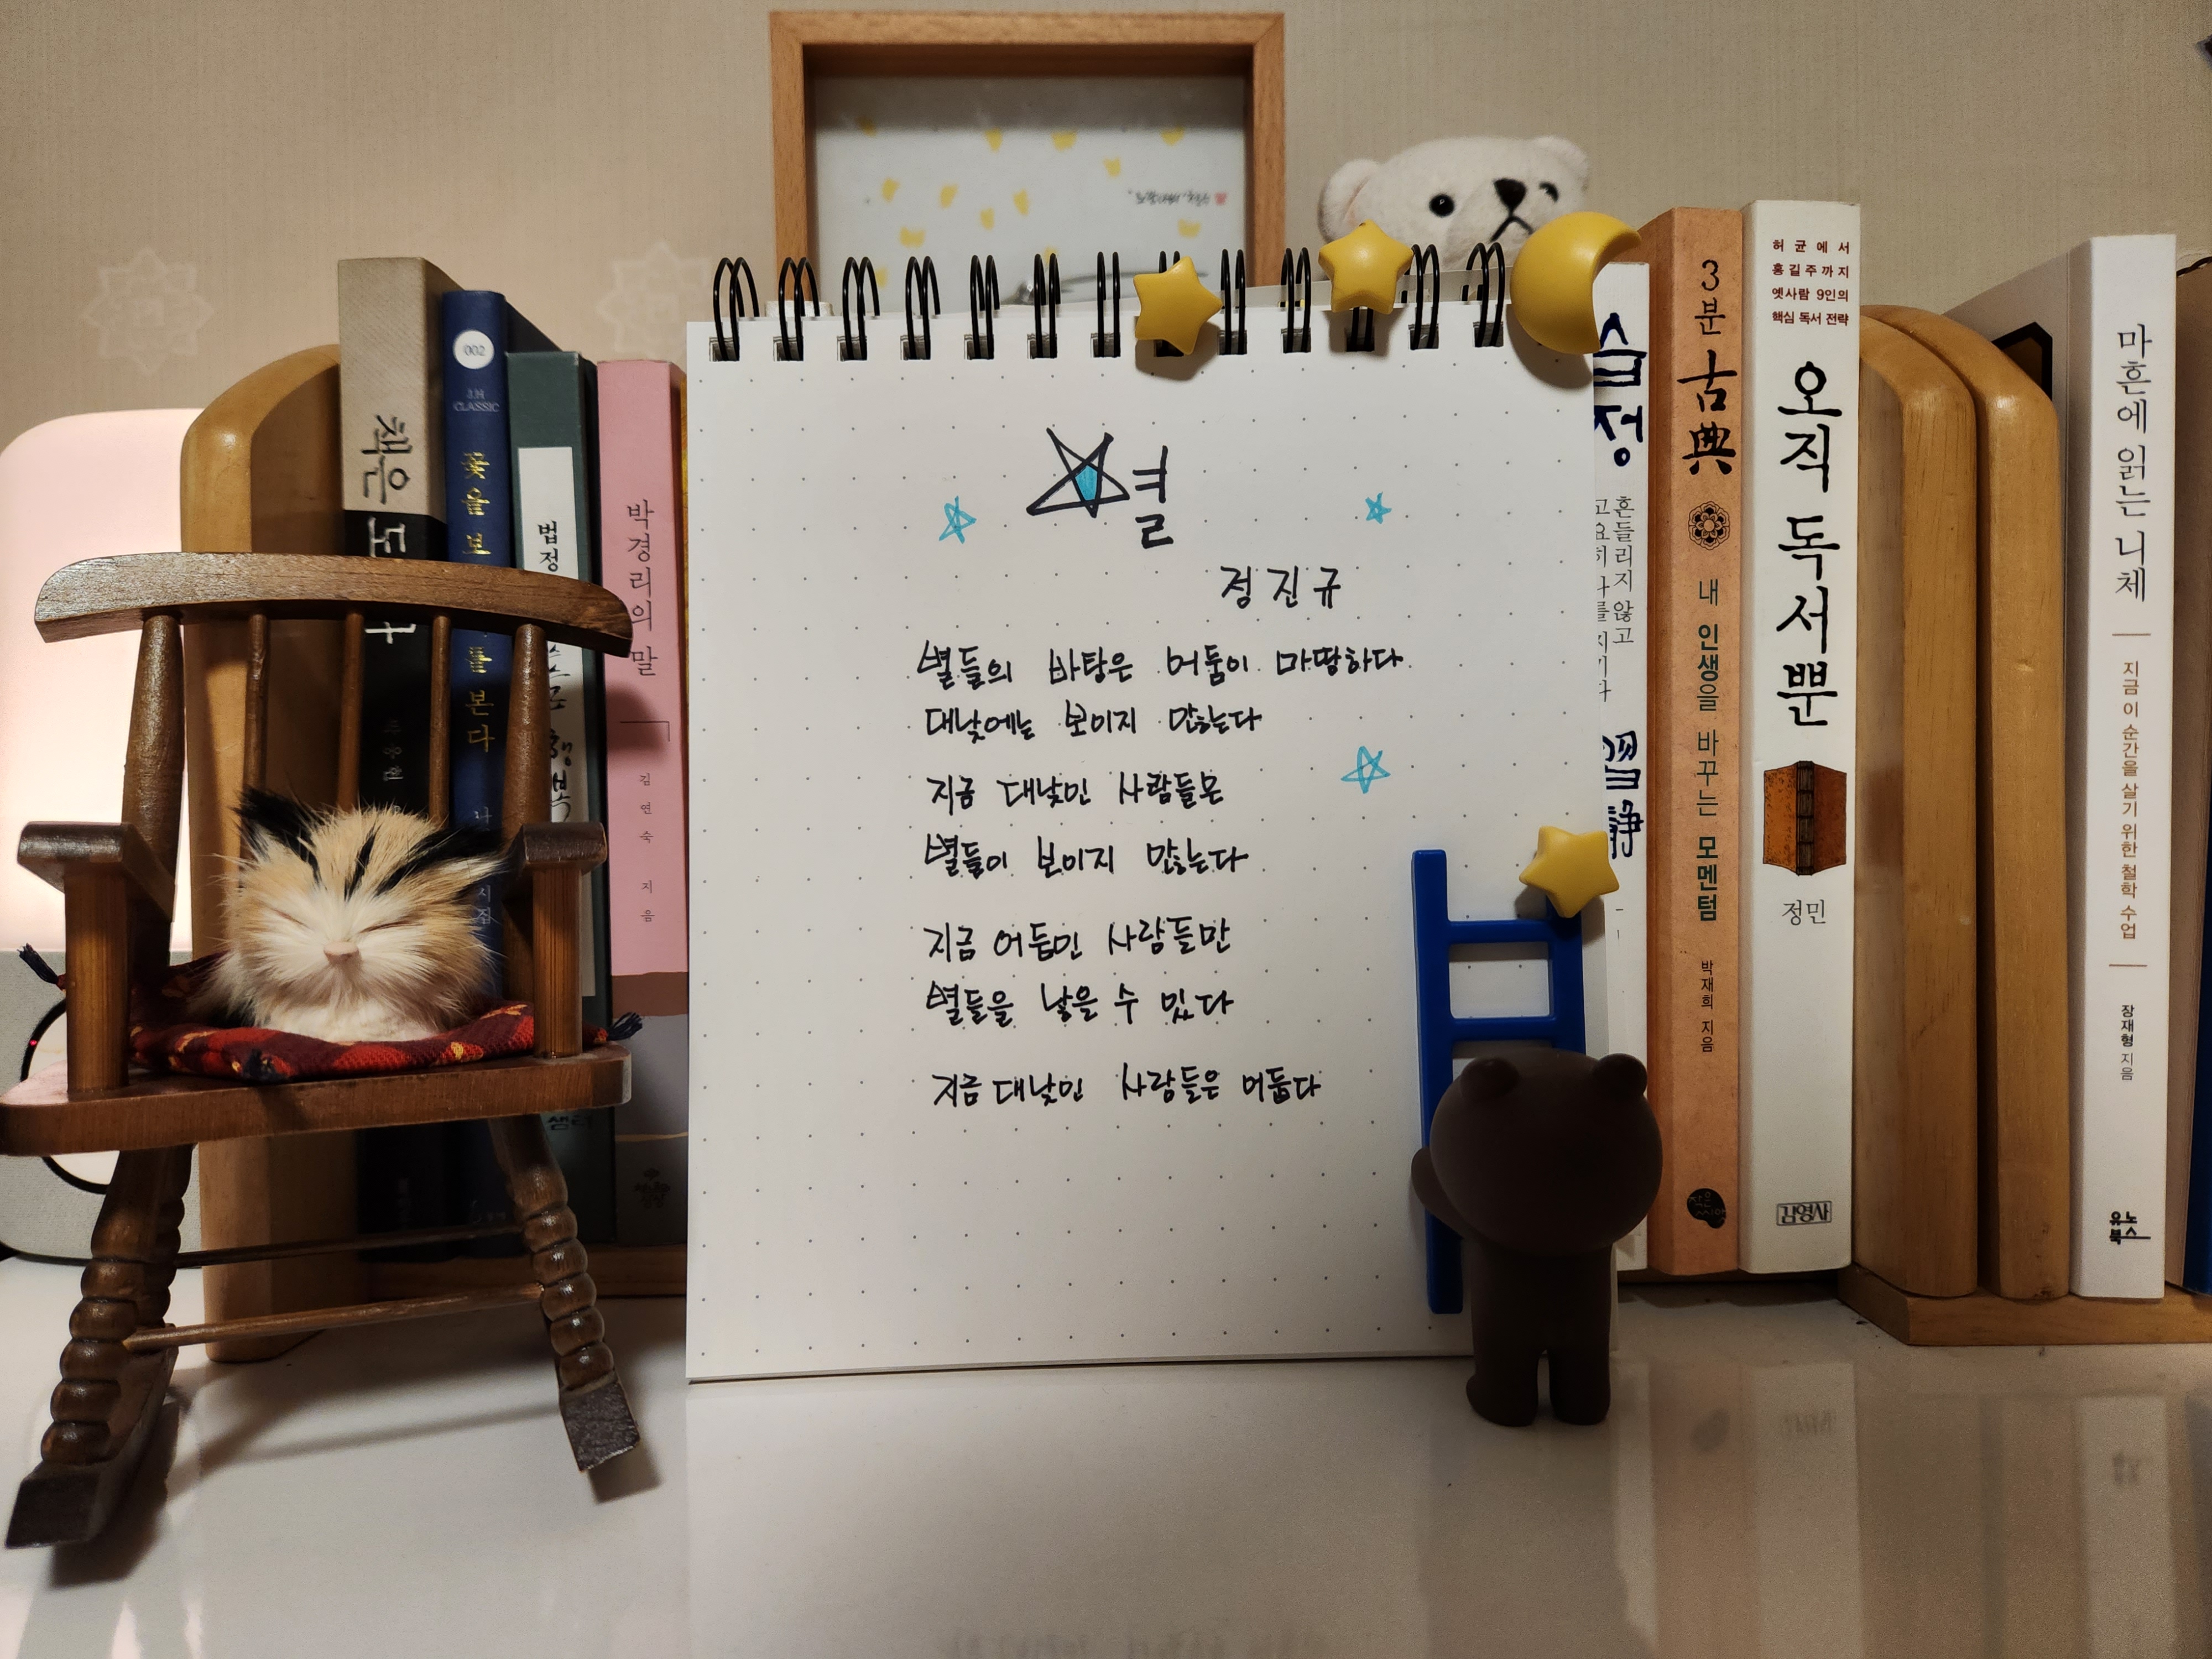 책은 도
002
클래식
CLASSIC
꽃을 보
를 본다
시집
법정
행복
박경리의 말
김연숙 지음
별
정진규
별들의 바탕은 어둠이 마땅하다
대낮에는 보이지 않는다
지금 대낮인 사람들은
별들이 보이지 않는다
지금 어둠인 사람들만
별들을 낳을 수 있다
지금 대낮인 사람들은 어둡다
습정
흔들리지 않고
고요히 나를 지키다
習靜
3분 古典
내 인생을 바꾸는 모멘텀
박재희 지음
작은씨앗
허균에서
홍길주까지
옛사람 9인의
핵심 독서 전략
오직 독서뿐
정민
김영사
마흔에 읽는 니체
지금 이 순간을 살기 위한 철학 수업
장재형 지음
유노북스